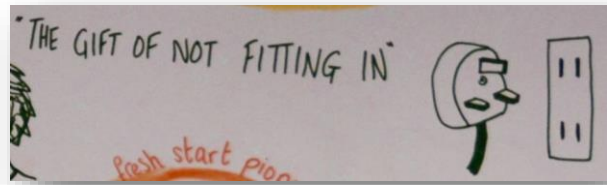 "THE GIFT OF NOT FITTING IN"
fresh start pion